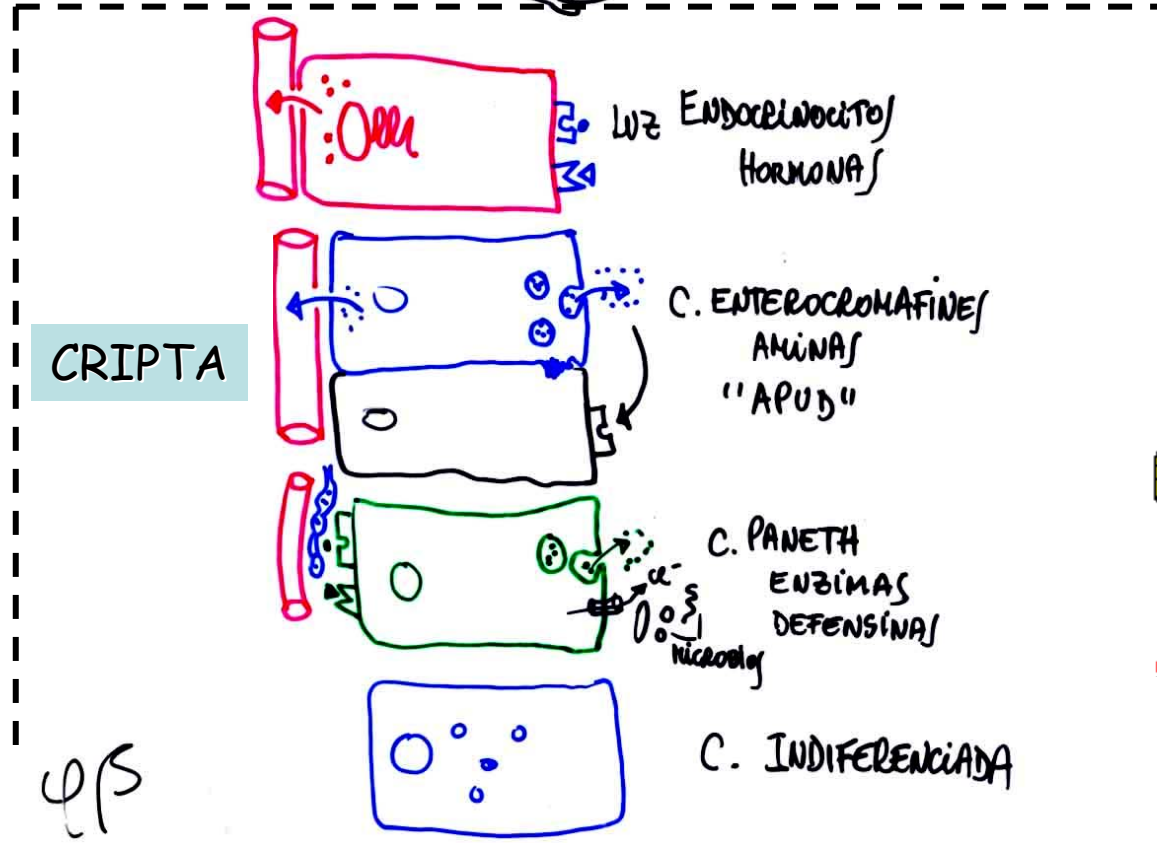 LUZ ENDOCRINOCITOS
HORMONAS
C. ENTEROCROMAFINES
AMINAS
"APUD"
CRIPTA
C. PANETH
ENZIMAS
DEFENSINAS
Cl-
MICROBIOS
C. INDIFERENCIADA